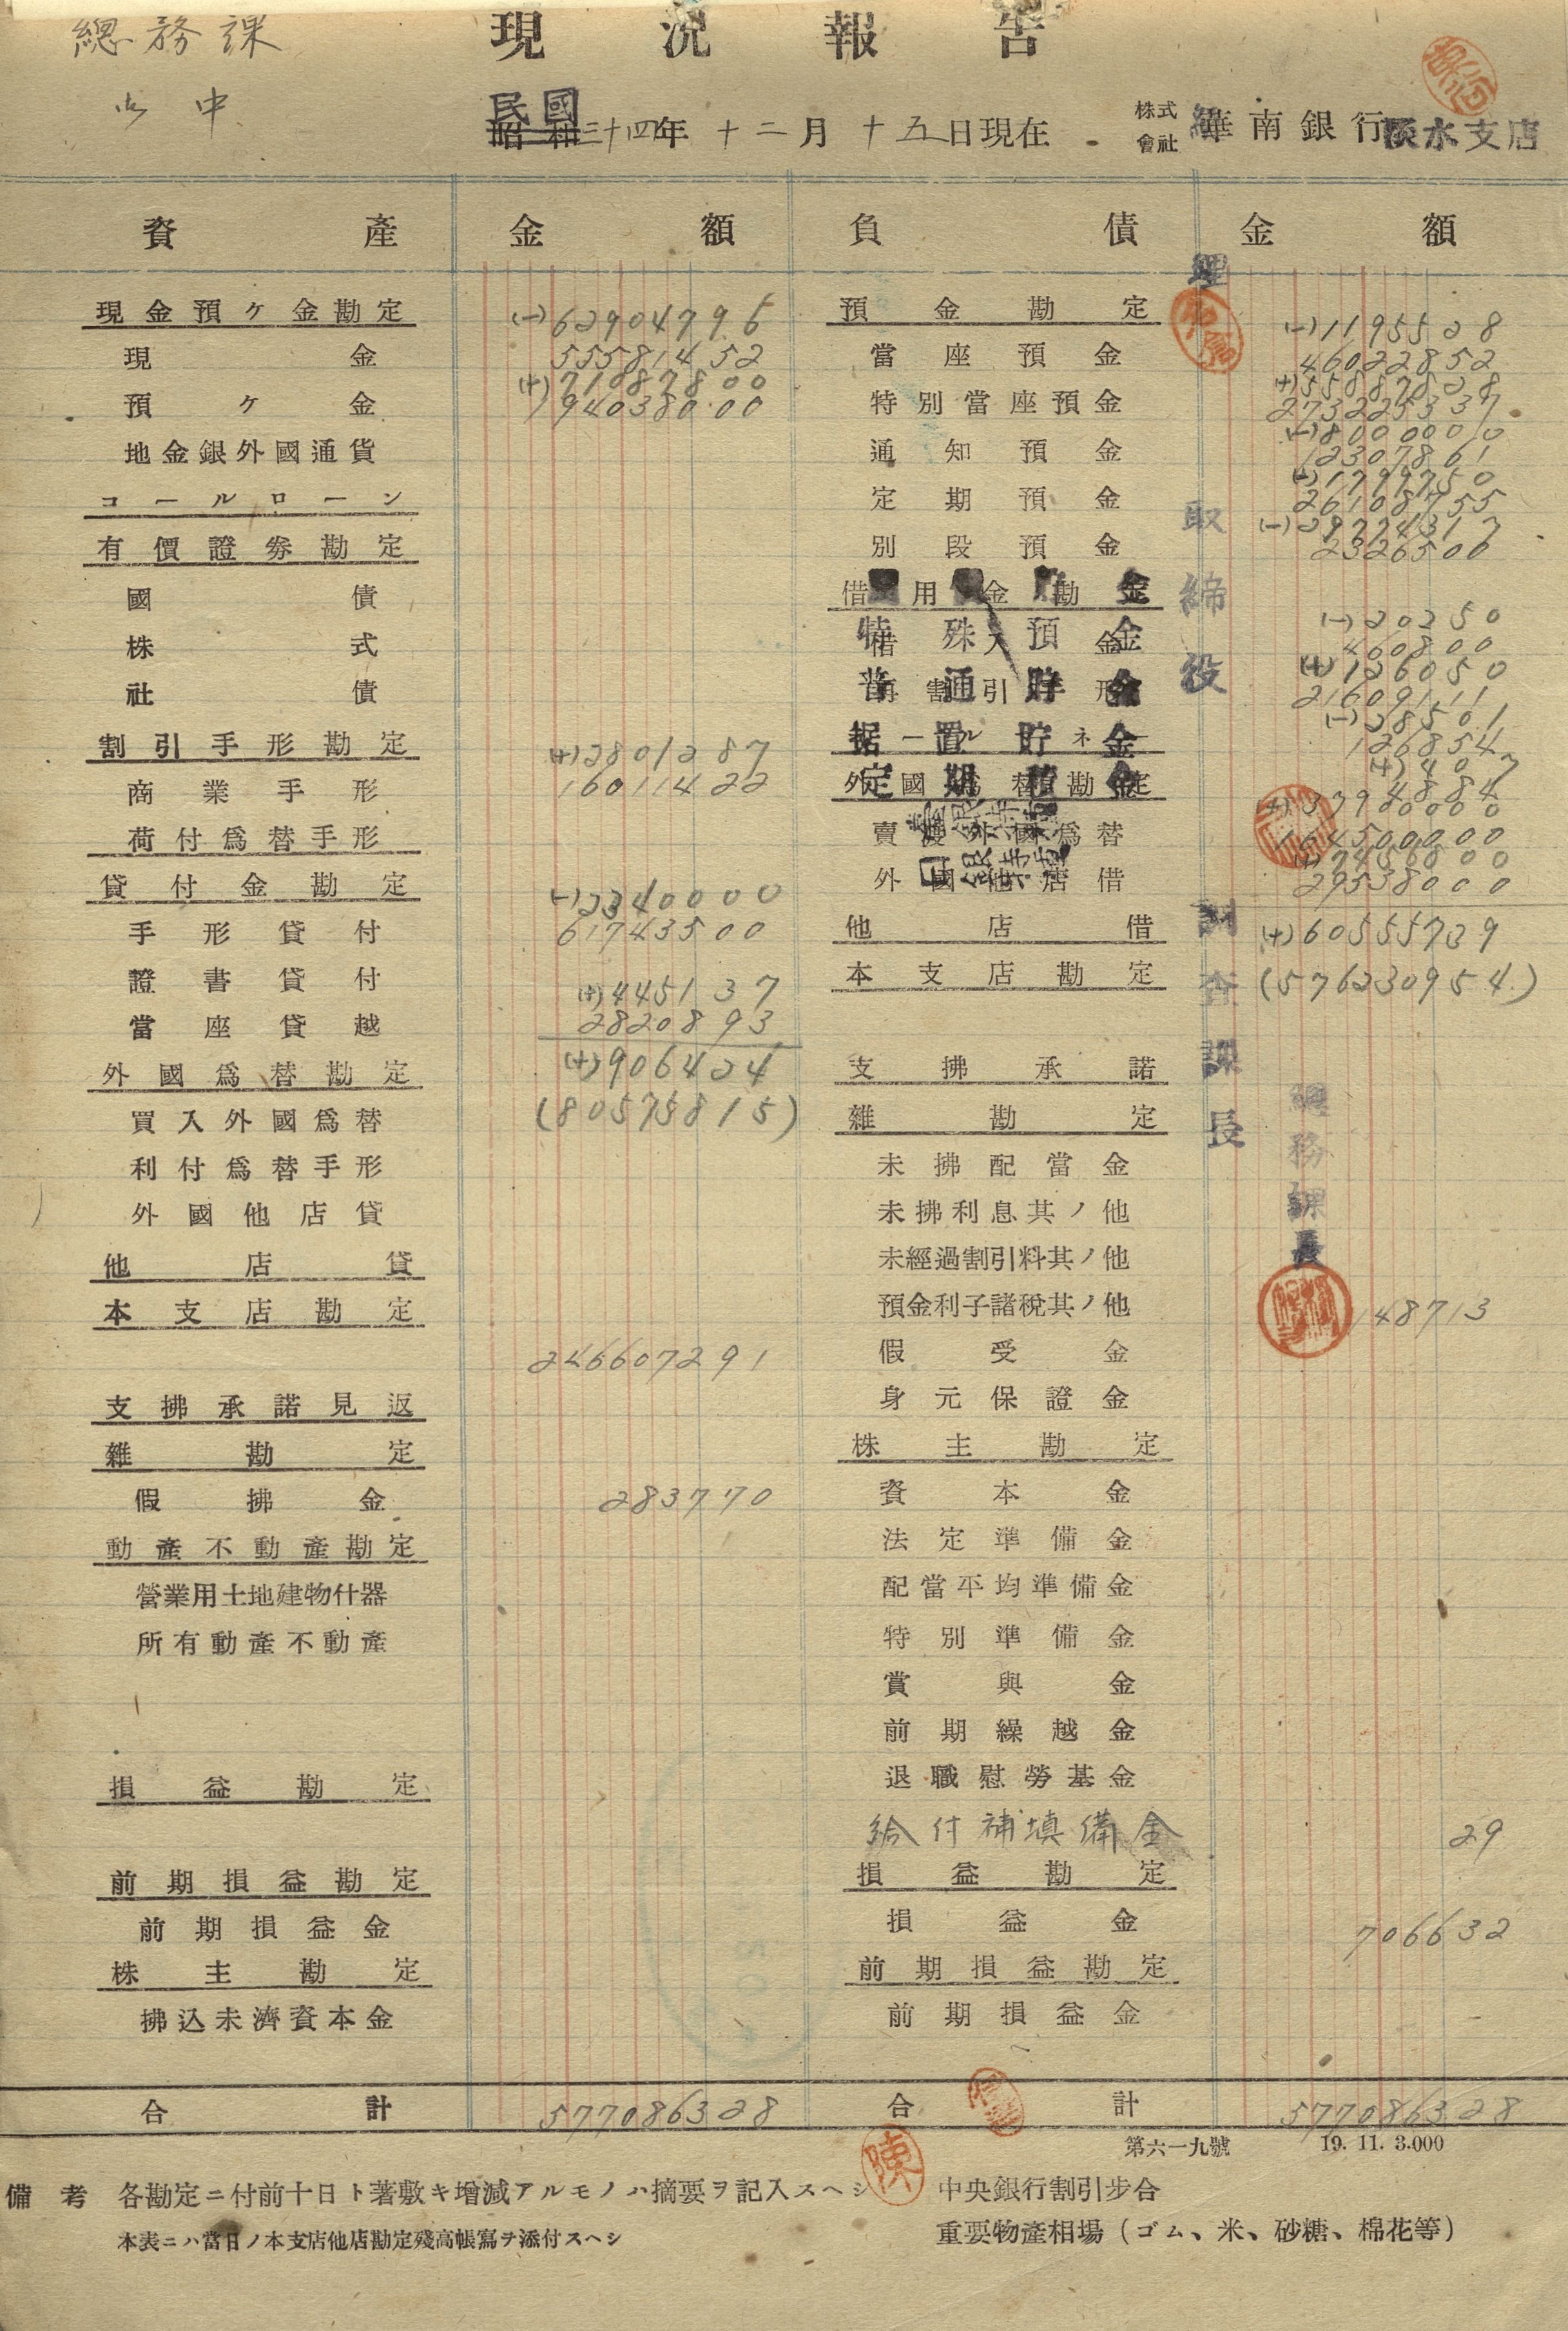 總務課
現況報告
御中
民國
昭和三十四年十二月十五日現在
株式會社 華南銀行淡水支店
資產 金額 負債 金額
現金預ヶ金勘定 (-)62904796
現金 55581452
(+)71087800
預ヶ金 194038000
地金銀外國通貨
コールローン
有價證券勘定
國債
株式
社債
割引手形勘定 (+)2801287
商業手形 16011422
荷付爲替手形
貸付金勘定 (-)2340000
手形貸付 61743500
證書貸付 (+)4451 37
當座貸越 28208 93
外國爲替勘定 (+)906424
買入外國爲替 (80575815)
利付爲替手形
外國他店貸
他店貸
本支店勘定
246607291
支拂承諾見返
雜勘定
假拂金 283770
動產不動產勘定
營業用土地建物什器
所有動產不動產
損益勘定
前期損益勘定
前期損益金
株主勘定
拂込未濟資本金
合計 577086328
預金勘定 (-)1195528
當座預金 46022852
(+)55887828
特別當座預金 273225337
(-)8000000
通知預金 12307861
(+)1799750
定期預金 26108755
(-)29774317
別段預金 2326500
借用金勘定
(-)20250
特殊預金 460800
借入金
(+)126050
普通貯金 21609111
再割引手形
(-)28501
据置貯金 126854
コールマネー
(+)407
定期積金 4884
外國爲替勘定
(+)37920000
賣渡外國爲替 164500000
(+)7456800
外國他店借 29538000
他店借 (+)60555739
本支店勘定 (576230954)
支拂承諾
雜勘定
未拂配當金
未拂利息其ノ他
未經過割引料其ノ他
預金利子諸稅其ノ他 148713
假受金
身元保證金
株主勘定
資本金
法定準備金
配當平均準備金
特別準備金
賞與金
前期繰越金
退職慰勞基金
給付補填備金 29
損益勘定
損益金 706632
前期損益勘定
前期損益金
合計 577086328
取締役
調查課長
總務課長
陳
第六一九號 19. 11. 3.000
備考 各勘定ニ付前十日ト著敷キ增減アルモノハ摘要ヲ記入スヘシ
本表ニハ當日ノ本支店他店勘定殘高帳寫ヲ添付スヘシ
中央銀行割引步合
重要物產相場（ゴム、米、砂糖、棉花等）